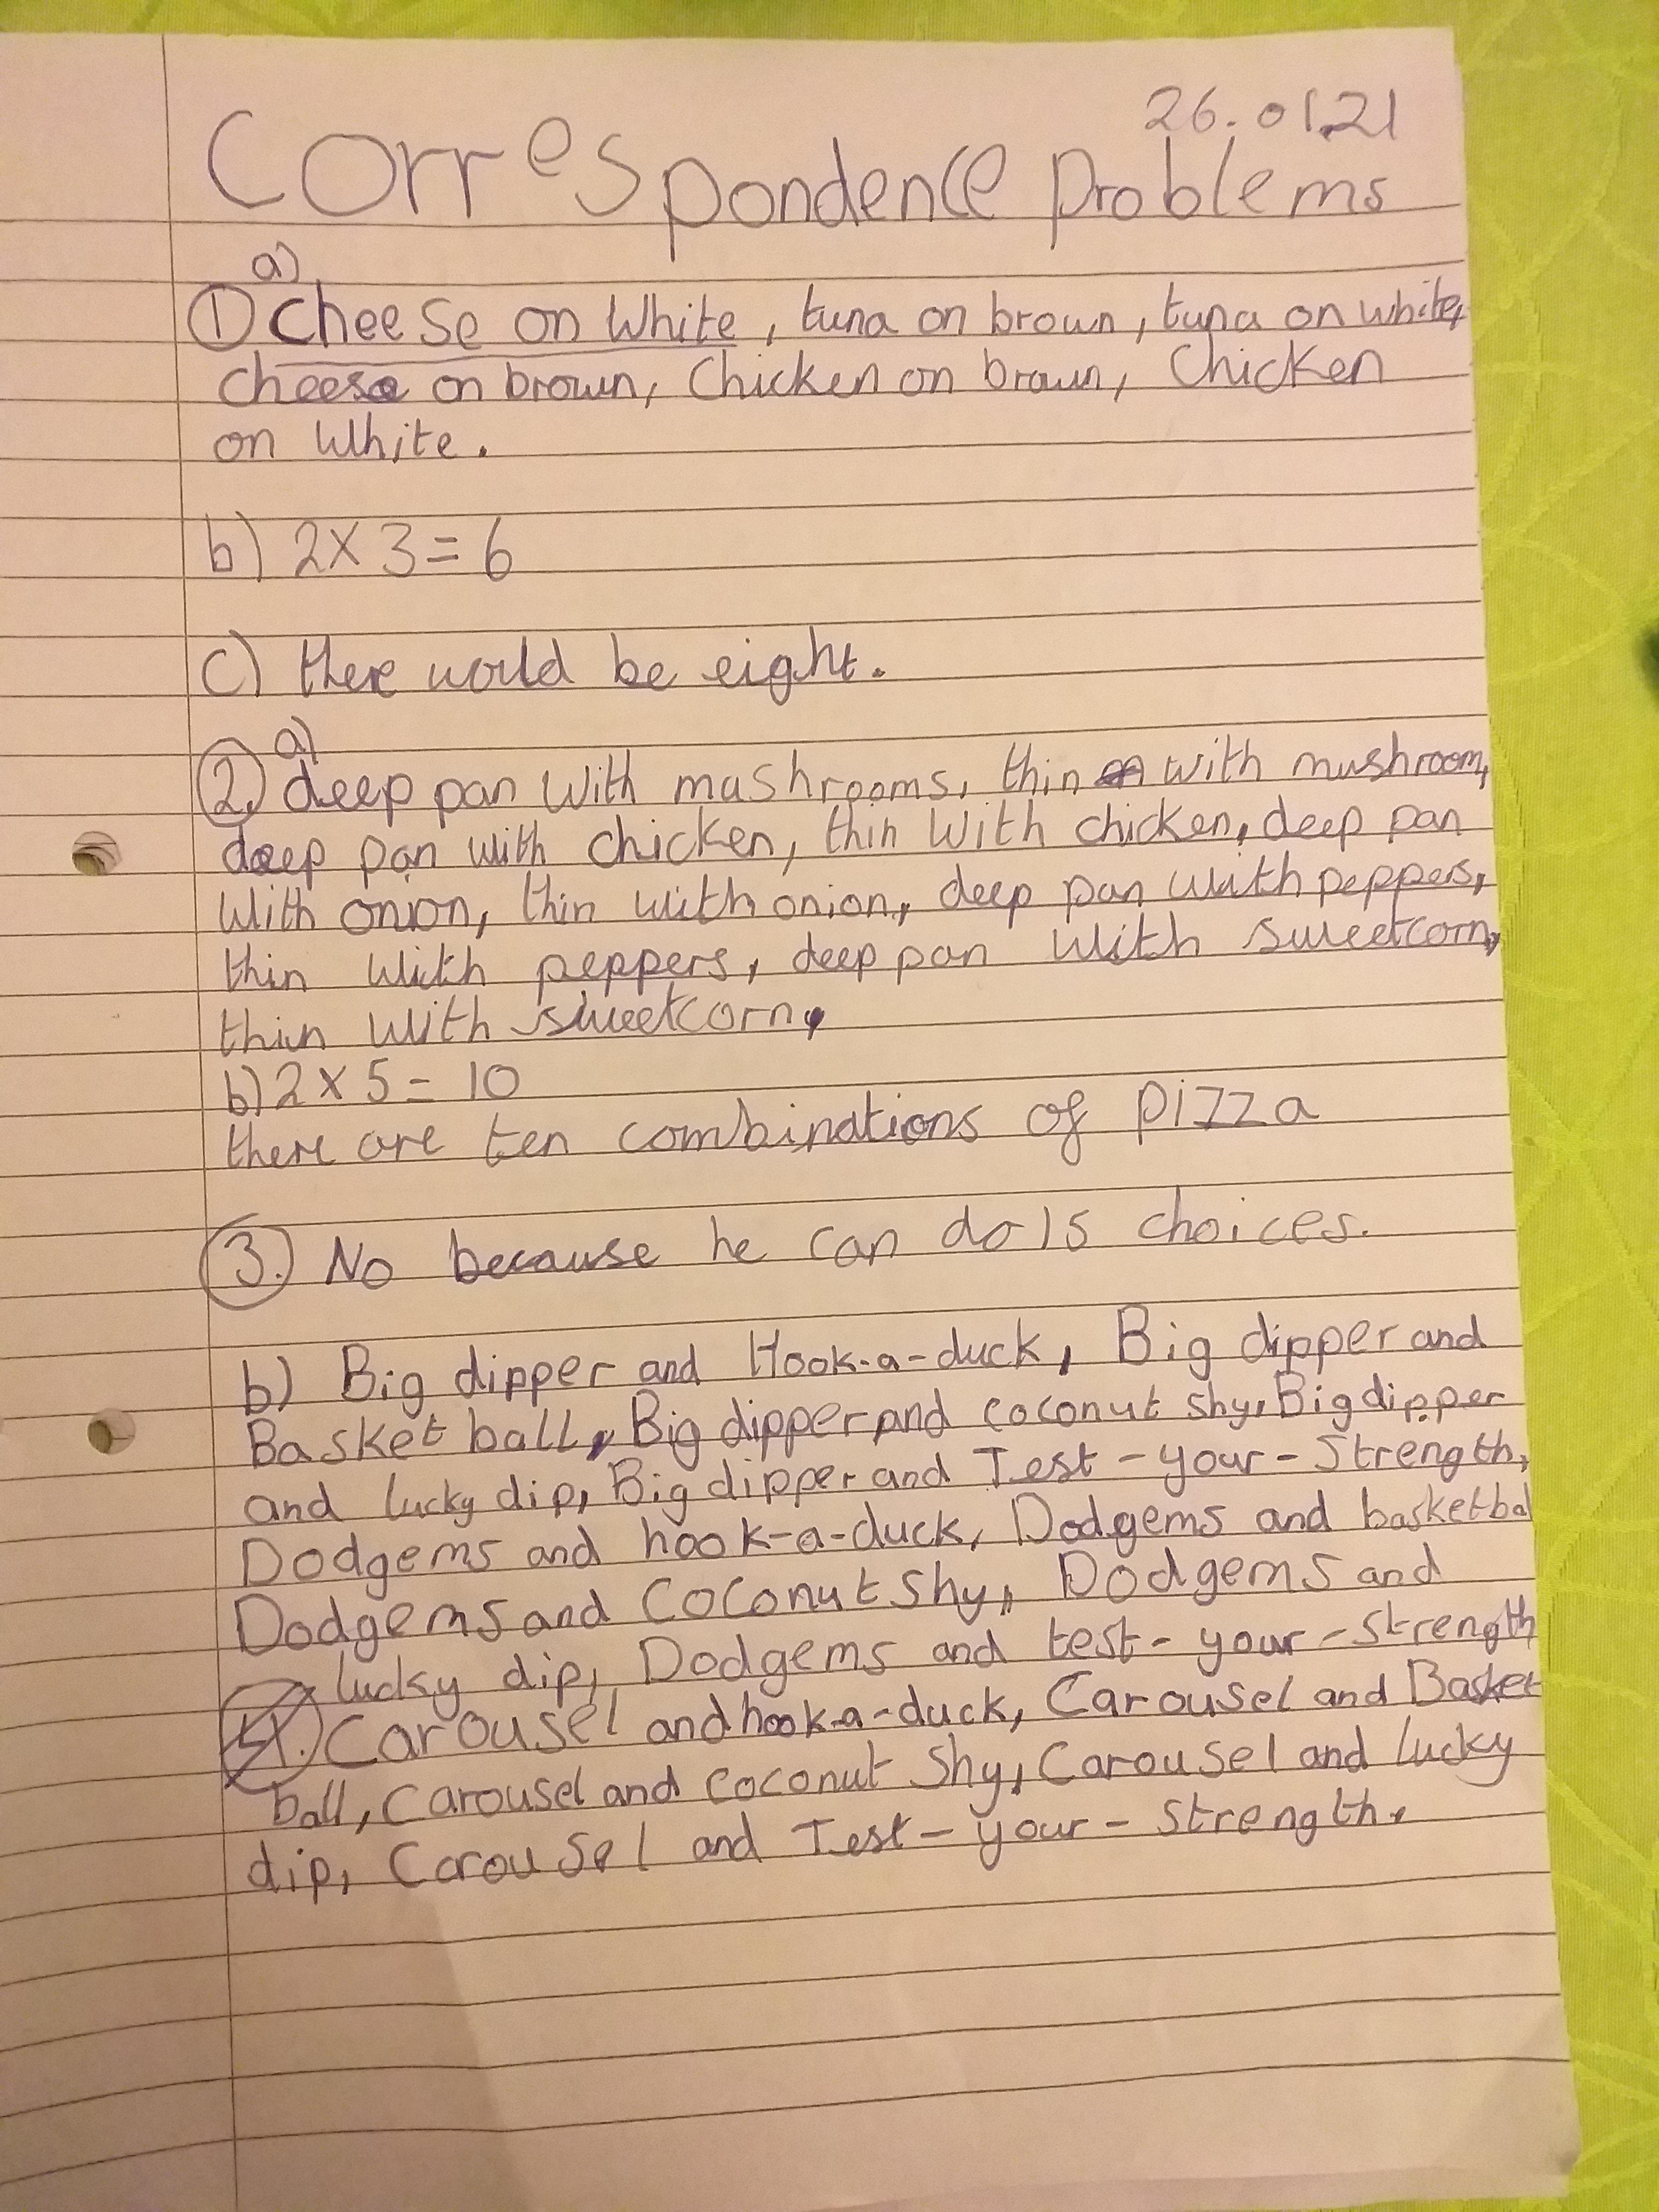 26.01.21
Correspondence problems
a)
① Cheese on White, tuna on brown, tuna on white,
cheese on brown, Chicken on brown, Chicken
on White.
b) 2 x 3 = 6
c) there would be eight.
a)
②. deep pan with mushrooms, thin with mushroom,
deep pan with chicken, thin with chicken, deep pan
with onion, thin with onion, deep pan with peppers,
thin with peppers, deep pan with sweetcorn,
thin with sweetcorn.
b) 2 x 5 = 10
there are ten combinations of pizza
③. No because he can do 15 choices.
b) Big dipper and Hook-a-duck, Big dipper and
Basket ball, Big dipper and coconut shy, Big dipper
and lucky dip, Big dipper and Test-your-Strength,
Dodgems and hook-a-duck, Dodgems and basketbal
Dodgems and Coconut Shy, Dodgems and
lucky dip, Dodgems and test-your-strength
Carousel and hook-a-duck, Carousel and Basket
ball, Carousel and coconut Shy, Carousel and lucky
dip, Carousel and Test-your-Strength.